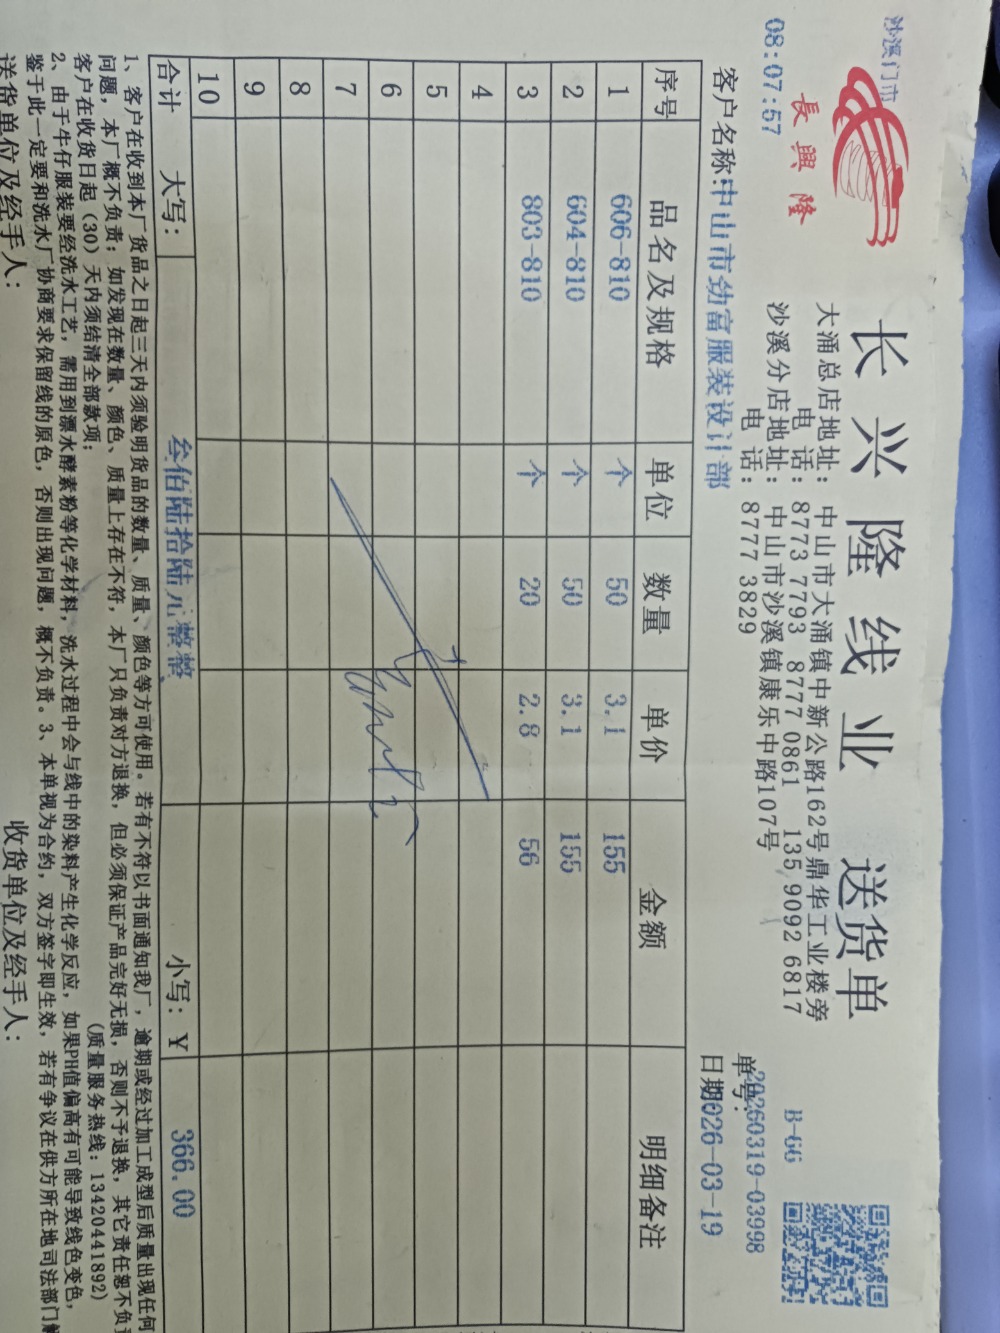 沙溪门市
08:07:57
長興隆
长兴隆线业 送货单
大涌总店地址：中山市大涌镇中新公路162号鼎华工业楼旁
电 话：8773 7793 8777 0861 135 9092 6817
沙溪分店地址：中山市沙溪镇康乐中路107号
电 话：8777 3829
B-66
单号：20260319-03998
客户名称:中山市劲富服装设计部
日期:2026-03-19
序号 品名及规格 单位 数量 单价 金额 明细备注
1 606-810 个 50 3.1 155
2 604-810 个 50 3.1 155
3 803-810 个 20 2.8 56
4
5
6
7
8
9
10
合计 大写： 叁佰陆拾陆元整整 小写：¥ 366.00
1、客户在收到本厂货品之日起三天内须验明货品的数量、质量、颜色等方可使用。若有不符以书面通知我厂，逾期或经过加工成型后质量出现任何
问题，本厂概不负责；如发现在数量、颜色、质量上存在不符，本厂只负责对方退换，但必须保证产品完好无损，否则不予退换，其它责任恕不负责
客户在收货日起（30）天内须结清全部款项；
(质量服务热线：13420441892)
2、由于牛仔服装要经洗水工艺，需用到漂水酵素粉等化学材料，洗水过程中会与线中的染料产生化学反应，如果PH值偏高有可能导致线色变色，
鉴于此一定要和洗水厂协商要求保留线的原色，否则出现问题，概不负责。3、本单视为合约，双方签字即生效，若有争议在供方所在地司法部门解
送货单位及经手人：
收货单位及经手人：